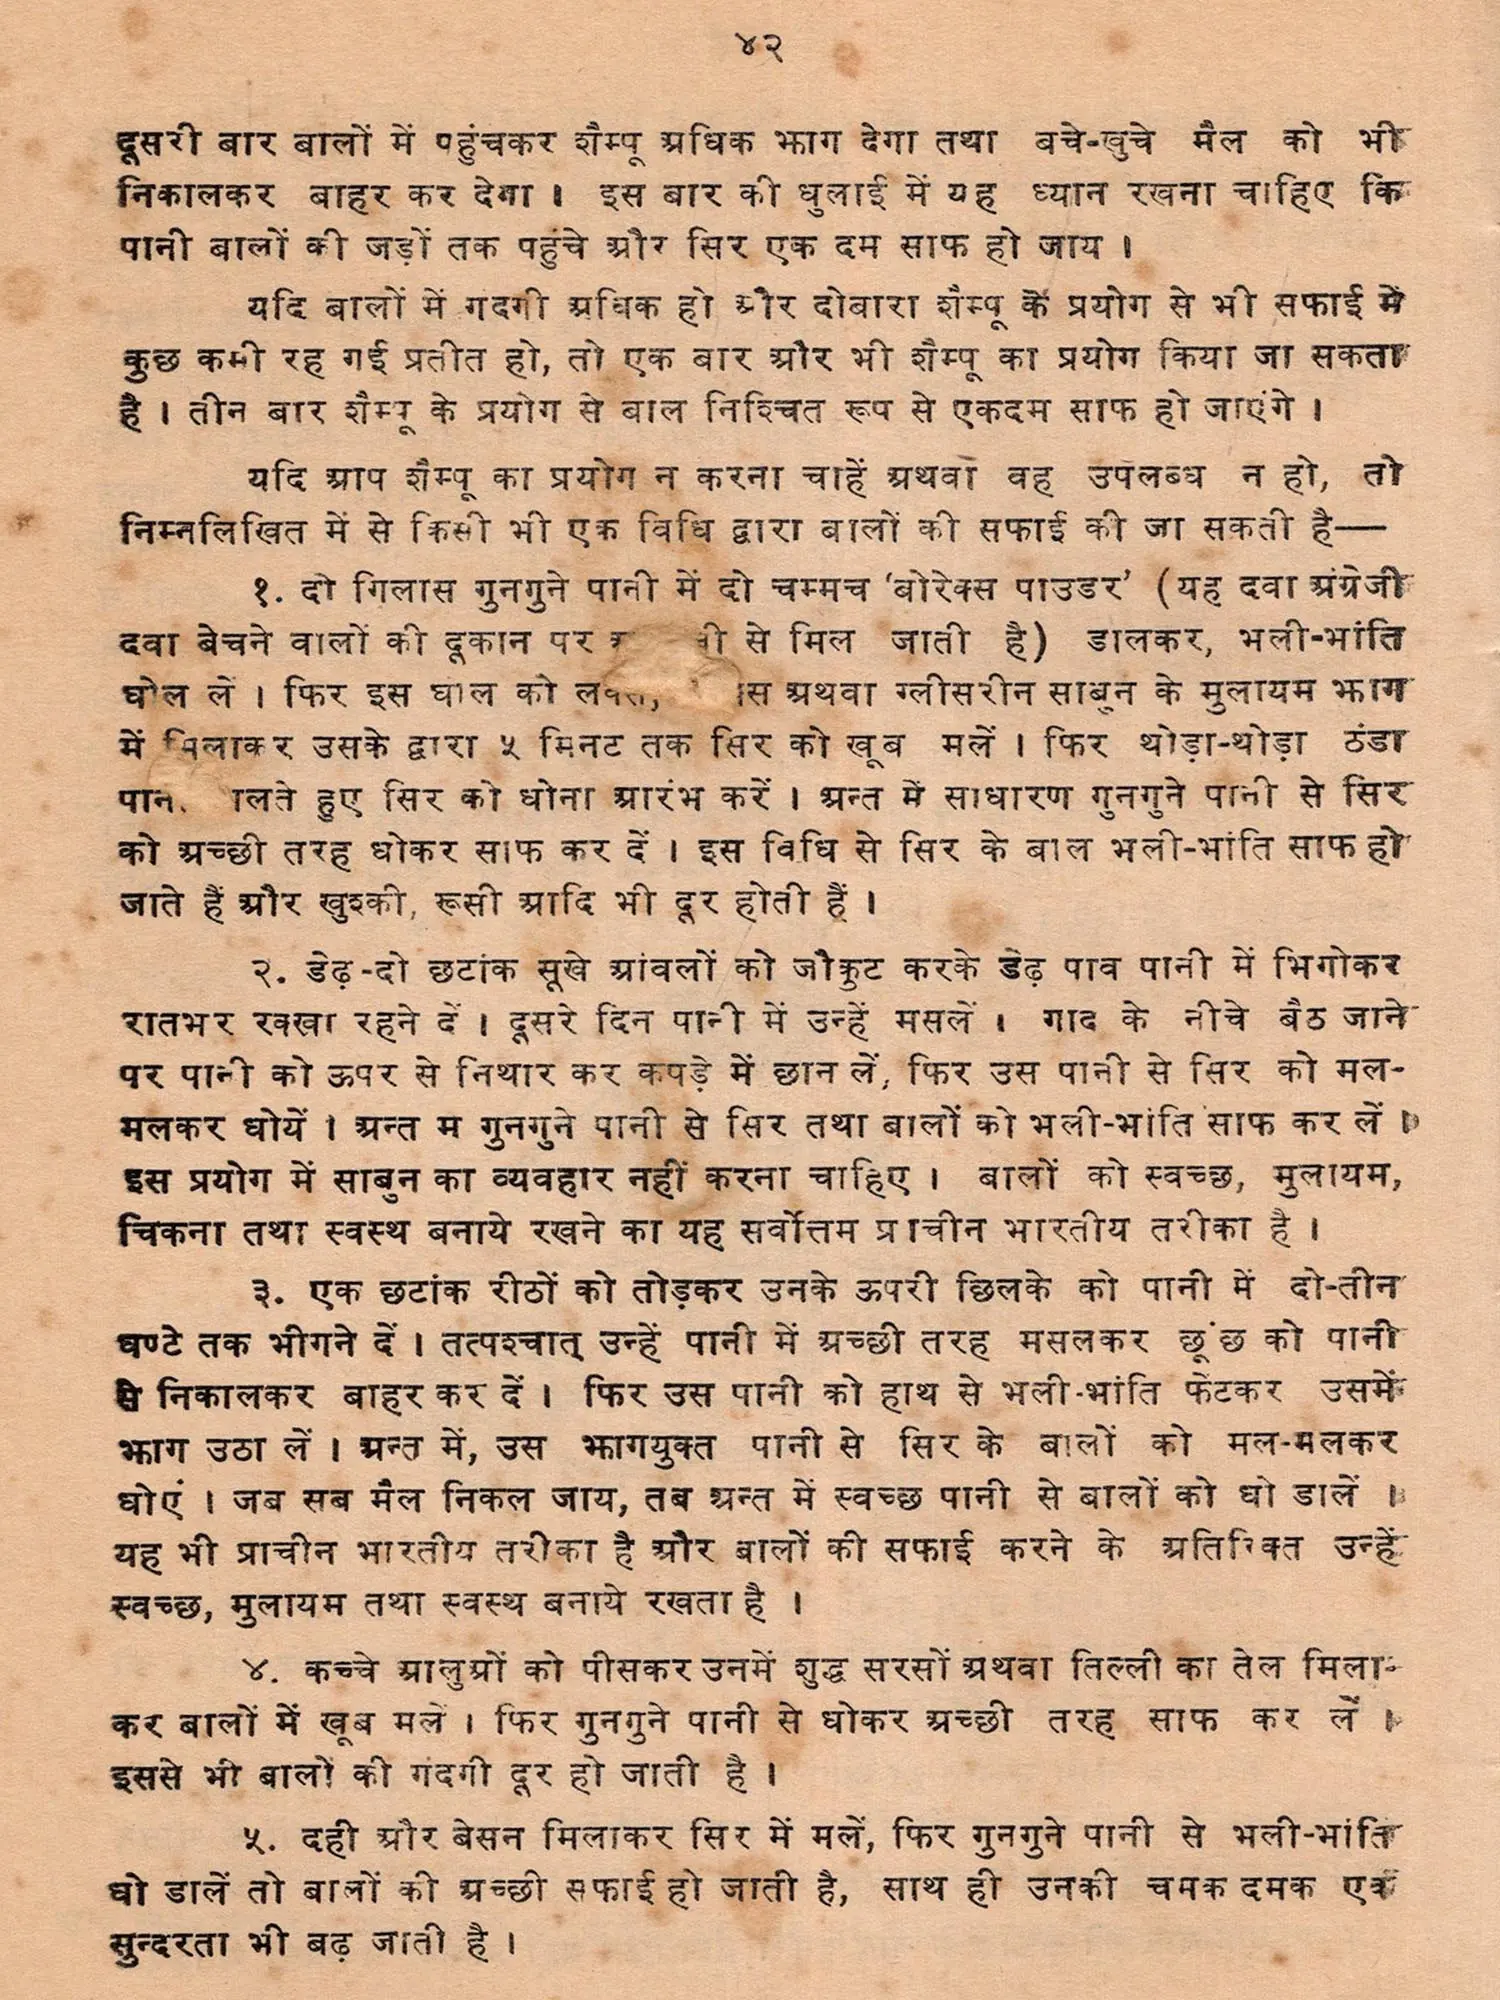 ४२
दूसरी बार बालों में पहुंचकर शैम्पू अधिक झाग देगा तथा बचे-खुचे मैल को भी
निकालकर बाहर कर देगा । इस बार की धुलाई में यह ध्यान रखना चाहिए कि
पानी बालों की जड़ों तक पहुंचे और सिर एक दम साफ हो जाय ।
यदि बालों में गदगी अधिक हो और दोबारा शैम्पू के प्रयोग से भी सफाई में
कुछ कमी रह गई प्रतीत हो, तो एक बार और भी शैम्पू का प्रयोग किया जा सकता
है । तीन बार शैम्पू के प्रयोग से बाल निश्चित रूप से एकदम साफ हो जाएंगे ।
यदि आप शैम्पू का प्रयोग न करना चाहें अथवा वह उपलब्ध न हो, तो
निम्नलिखित में से किसी भी एक विधि द्वारा बालों की सफाई की जा सकती है—
१. दो गिलास गुनगुने पानी में दो चम्मच ‘बोरेक्स पाउडर’ (यह दवा अंग्रेजी
दवा बेचने वालों की दूकान पर से मिल जाती है) डालकर, भली-भांति
घोल लें । फिर इस घाल को अथवा ग्लीसरीन साबुन के मुलायम झाग
में मिलाकर उसके द्वारा ५ मिनट तक सिर को खूब मलें । फिर थोड़ा-थोड़ा ठंडा
हुए सिर को धोना आरंभ करें । अन्त में साधारण गुनगुने पानी से सिर
को अच्छी तरह धोकर साफ कर दें । इस विधि से सिर के बाल भली-भांति साफ हो
जाते हैं और खुश्की, रूसी आदि भी दूर होती हैं ।
२. डेढ़-दो छटांक सूखे आंवलों को जौकुट करके डेढ़ पाव पानी में भिगोकर
रातभर रक्खा रहने दें । दूसरे दिन पानी में उन्हें मसलें । गाद के नीचे बैठ जाने
पर पानी को ऊपर से निथार कर कपड़े में छान लें, फिर उस पानी से सिर को मल-
मलकर धोयें । अन्त म गुनगुने पानी से सिर तथा बालों को भली-भांति साफ कर लें ।
इस प्रयोग में साबुन का व्यवहार नहीं करना चाहिए । बालों को स्वच्छ, मुलायम,
चिकना तथा स्वस्थ बनाये रखने का यह सर्वोत्तम प्राचीन भारतीय तरीका है ।
३. एक छटांक रीठों को तोड़कर उनके ऊपरी छिलके को पानी में दो-तीन
घण्टे तक भीगने दें । तत्पश्चात् उन्हें पानी में अच्छी तरह मसलकर छूंछ को पानी
से निकालकर बाहर कर दें । फिर उस पानी को हाथ से भली-भांति फेंटकर उसमें
झाग उठा लें । अन्त में, उस झागयुक्त पानी से सिर के बालों को मल-मलकर
धोएं । जब सब मैल निकल जाय, तब अन्त में स्वच्छ पानी से बालों को धो डालें ।
यह भी प्राचीन भारतीय तरीका है और बालों की सफाई करने के अतिरिक्त उन्हें
स्वच्छ, मुलायम तथा स्वस्थ बनाये रखता है ।
४. कच्चे आलुओं को पीसकर उनमें शुद्ध सरसों अथवा तिल्ली का तेल मिला-
कर बालों में खूब मलें । फिर गुनगुने पानी से धोकर अच्छी तरह साफ कर लें ।
इससे भी बालों की गंदगी दूर हो जाती है ।
५. दही और बेसन मिलाकर सिर में मलें, फिर गुनगुने पानी से भली-भांति
धो डालें तो बालों की अच्छी सफाई हो जाती है, साथ ही उनकी चमक दमक एवं
सुन्दरता भी बढ़ जाती है ।